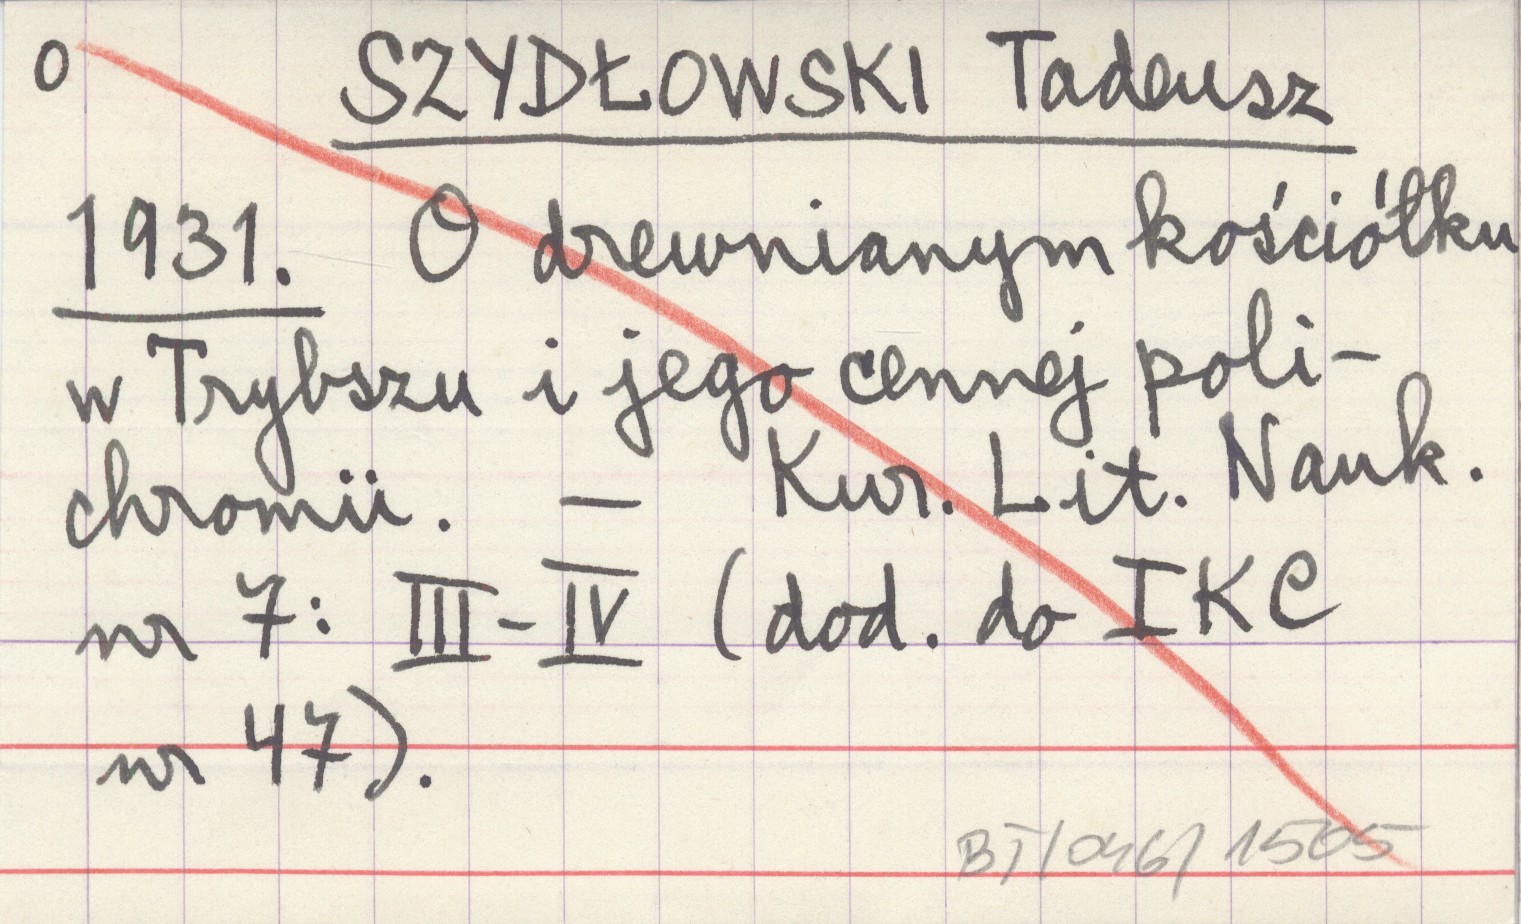 o SZYDŁOWSKI Tadeusz
1931. O drewnianym kościółku
w Trybszu i jego cennej poli-
chromii. — Kur. Lit. Nauk.
nr 7: III-IV (dod. do IKC
nr 47).
BT/046/1505